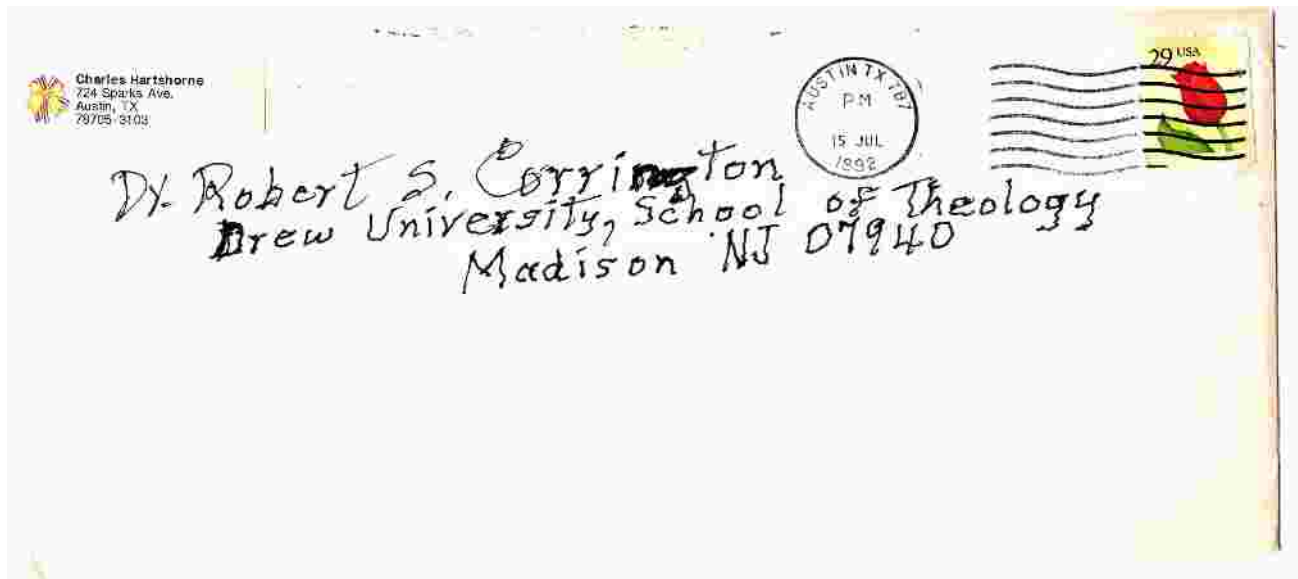 Charles Hartshorne
724 Sparks Ave.
Austin, TX
78705-3103
AUSTIN TX 787
PM
15 JUL
1992
29 USA
Dr. Robert S. Corrington
Drew University, School of Theology
Madison NJ 07940